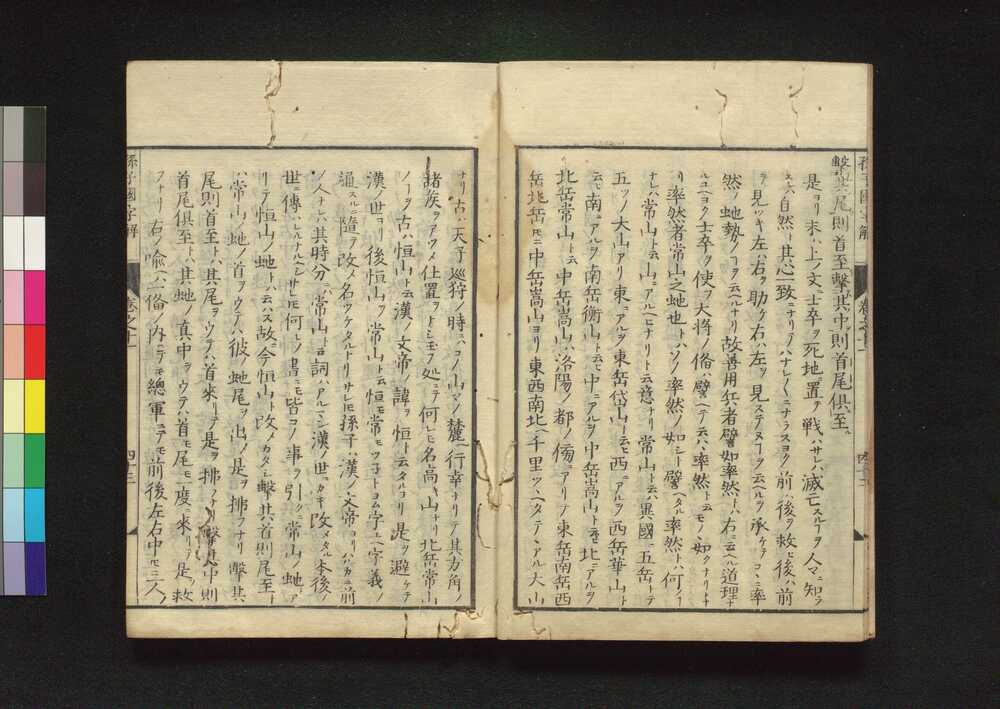 擊其尾則首至擊其中則首尾俱至
是ヨリ末ハ上ノ文ニ士卒ヲ死地置テ戰ハサレハ滅亡スルコヲ人々ニ知ラ
スレハ自然ト其心一致ニナリテハナレ〱ニナラスヨク前ハ後ヲ救ヒ後ハ前
ヲ見ツキ左ハ右ヲ助ケ右ハ左ヲ見ステヌコヲ云ヘルヲ承ケテコヽニ率
然ノ蛇勢ノコヲ云ヘルナリ故善用兵者譬如率然トハ右ニ云ヘル道理ナ
ルユヘヨク士卒ヲ使フ大將ノ備ハ譬ヘテ云ハヽ率然ト云モノヽ如クナリトナ
リ率然者常山之蛇也トハソノ率然ノ如シト譬ヘタル率然トハ何ノコ
ナレハ常山ト云山ニアルヘヒナリト云意ナリ常山ト云ハ異國ニ五岳トテ
五ツノ大山アリ東ニアルヲ東岳岱山ト云ヒ西ニアルヲ西岳華山ト
云ヒ南ニアルヲ南岳衡山ト云ヒ中ニアルヲ中岳嵩山ト云ヒ北ニアルヲ
北岳常山ト云中岳嵩山ハ洛陽ノ都ノ傷ニアリテ東岳南岳西
岳北岳トモニ中岳嵩山ヨリ東西南北ヘ千里ツヽヘタテヽアル大山
ナリ古ハ天子巡狩ノ時ニハコノ山々ノ麓ヘ行幸ナリテ其方角ノ
諸侯ヲアツメ仕置ヲトシ玉フ処ニテ何レモ名高キ山ナリ北岳常山
ノコヲ古ハ恒山ト云漢ノ文帝ノ諱ヲ恒ト云タルヨリ是ヲ避ケテ
漢ノ世ヨリ後恒山ヲ常山ト云恒モ常モツ子トヨム字ユヘ字義ノ
通スルニ隨テ改メ名ツケタルトナリサレモ孫子ハ漢ノ文帝ヨリハハカニ前
ノ人ナレハ其時分ニハ常山ト云詞ハアルマシ漢ノ世ニカキ改メタル本後ノ
世ニ傳ハレルナルヘシサレモ何レノ書ニモ皆コノ事ヲ引クニ常山ノ蛇トア
リテ恒山ノ蛇トハ云ハス故ニ今恒山ト改メカタシ擊其首則尾至ト
ハ常山ノ蛇ノ首ヲウテハ彼ノ蛇尾ヲ出ノ是ヲ拂フナリ擊其
尾則首至トハ其尾ヲウテハ首來リテ是ヲ拂フナリ擊其中則
首尾俱至トハ其蛇ノ真中ヲウテハ首尾モ一度ニ來リテ是ヲ救
フナリ右ノ喩ヘハ一備ノ內ニテモ總軍ニテモ前後左右中トモニ一人ノ
孫子國字解
卷之十一
四十三